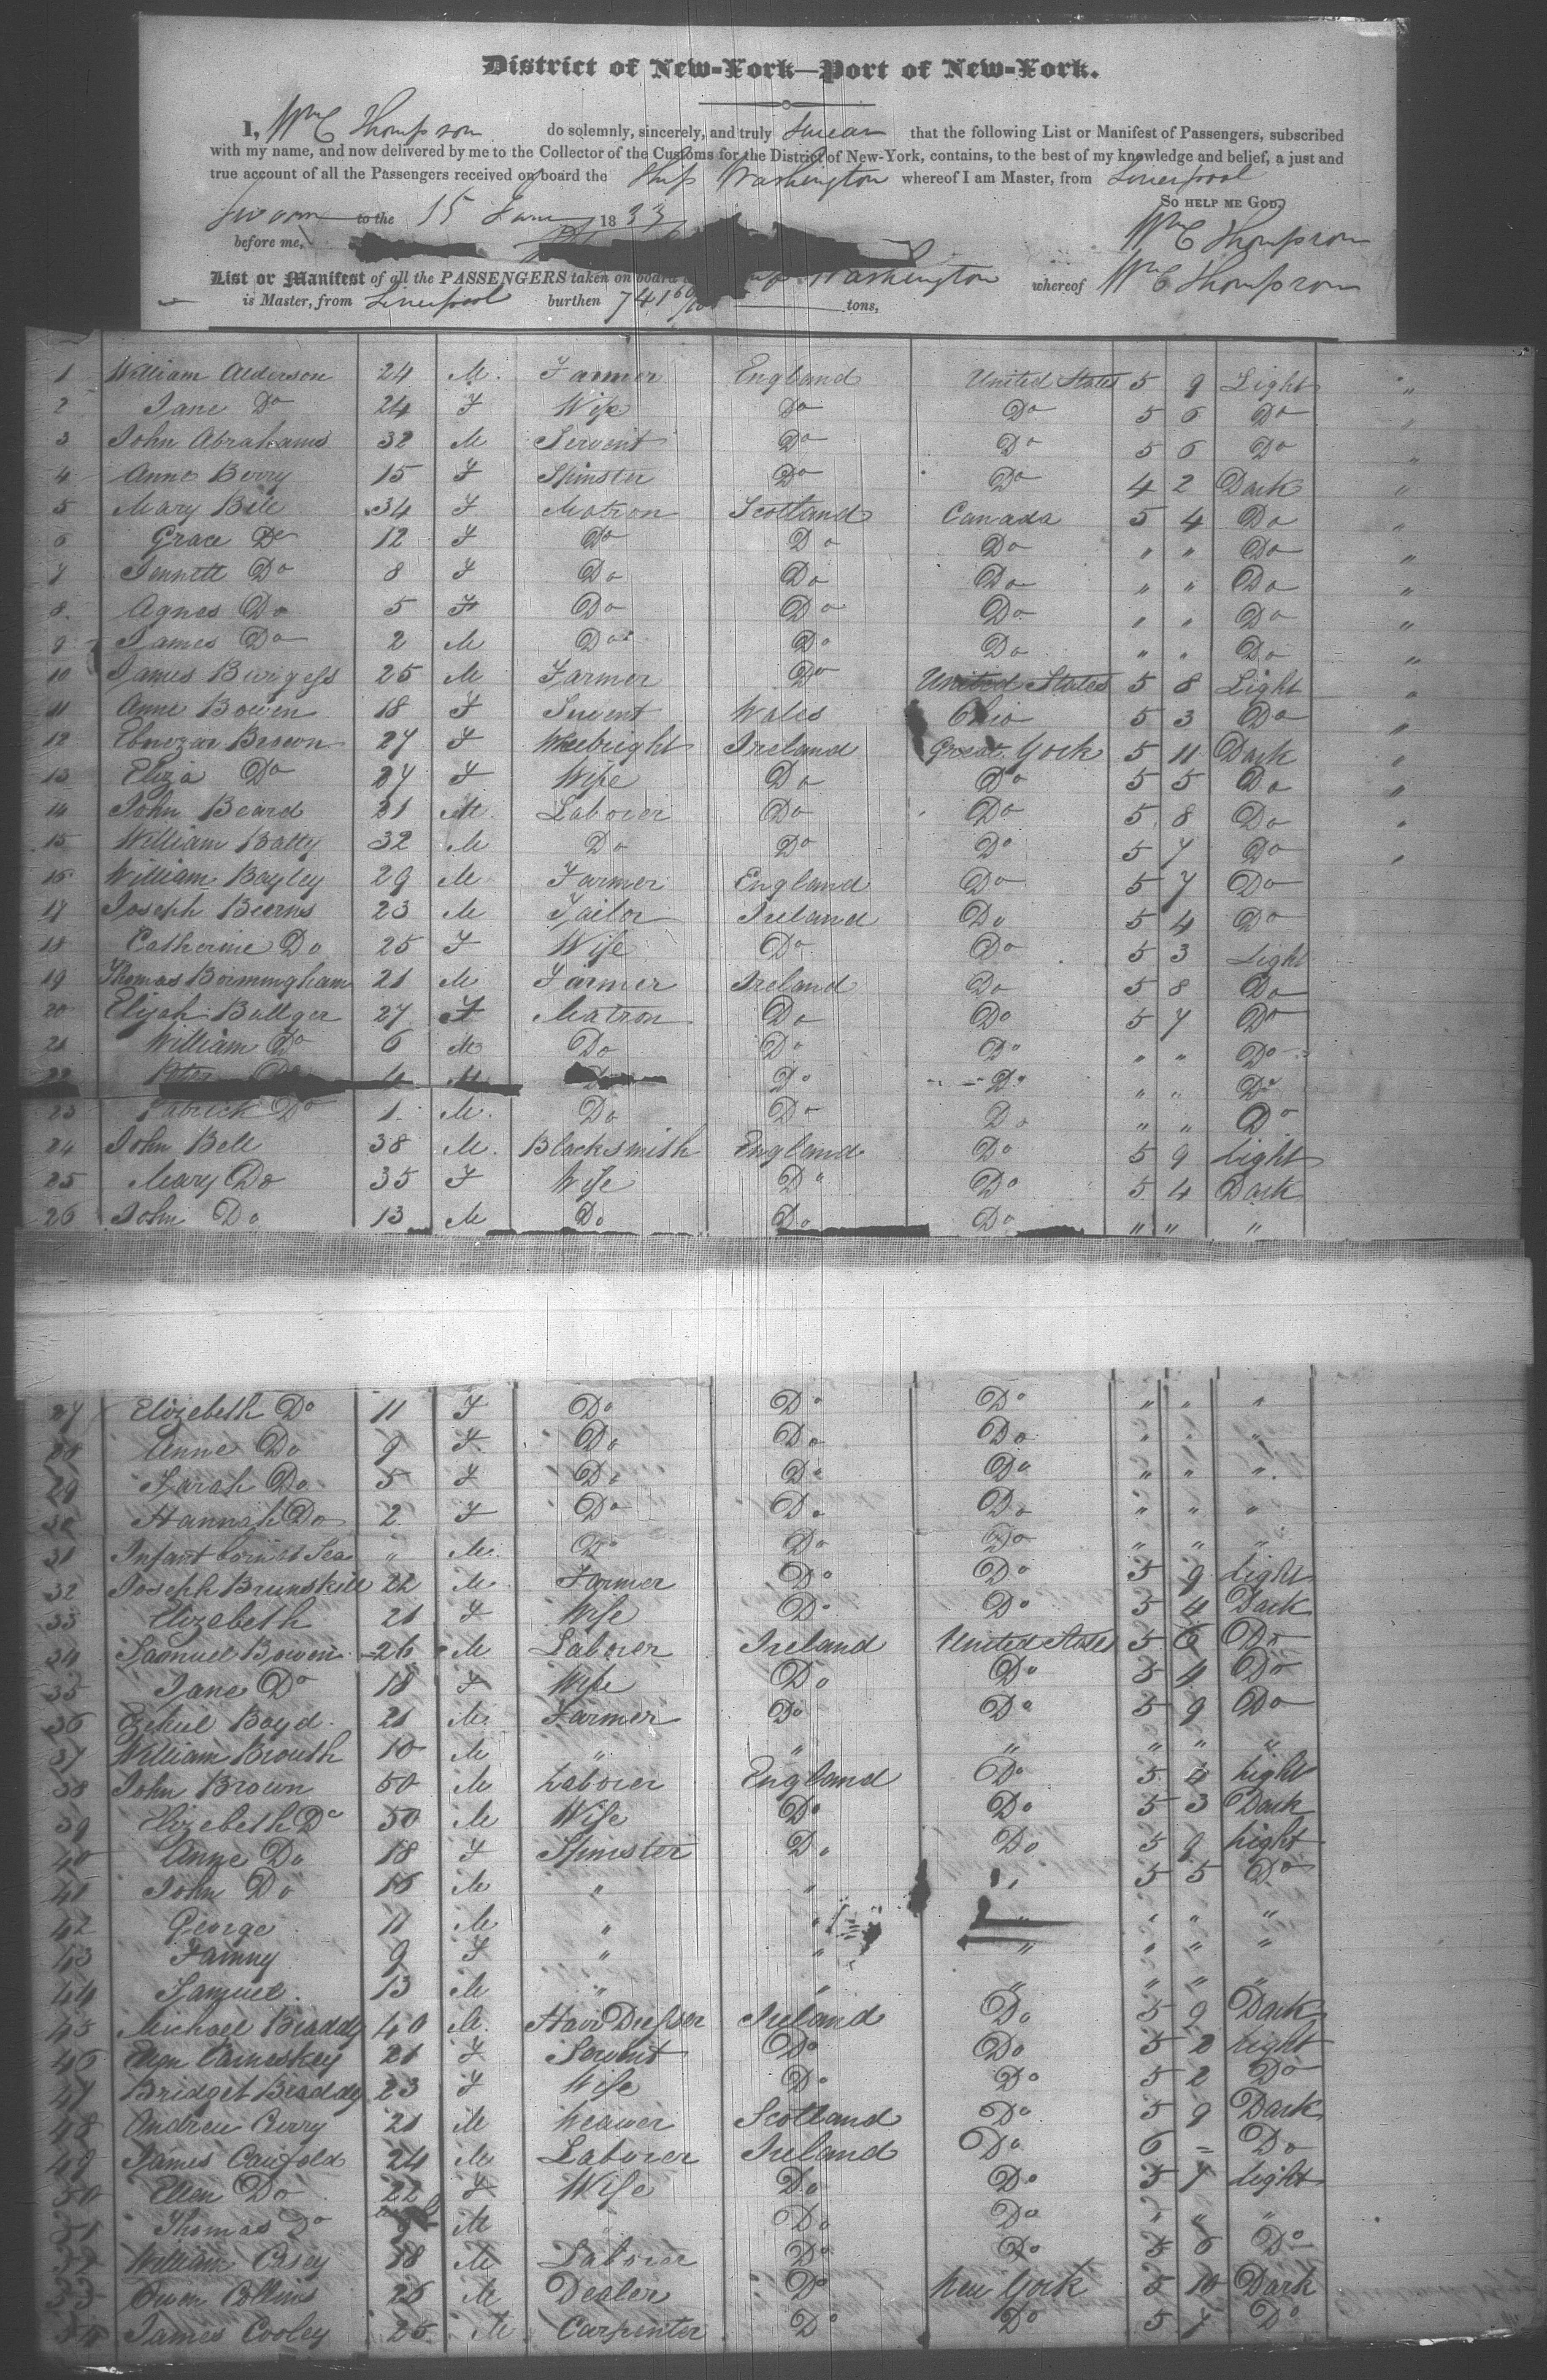 District of New-York—Port of New-York.
I, Wm C Thompson do solemnly, sincerely, and truly Swear that the following List or Manifest of Passengers, subscribed
with my name, and now delivered by me to the Collector of the Customs for the District of New-York, contains, to the best of my knowledge and belief, a just and
true account of all the Passengers received on board the Ship Washington whereof I am Master, from Liverpool
So help me God.
Sworn to the 15 June 1833 Wm C Thompson
before me,
List or Manifest of all the PASSENGERS taken on board Washington whereof Wm C Thompson
is Master, from Liverpool burthen 741 60/100 tons,
1 William Alderson 24 M. Farmer England United States 5 9 Light "
2 Jane Do 24 F Wife Do Do 5 6 Do "
3 John Abrahams 32 M Servent Do Do 5 6 Do "
4 Anne Berry 15 F Spinster Do Do 4 2 Dark "
5 Mary Bell 34 F Matron Scotland Canada 5 4 Do "
6 Grace Do 12 F Do Do Do " " Do "
7 Jennett Do 8 F Do Do Do " " Do "
8. Agnes Do 5 F Do Do Do " " Do "
9 James Do 2 M Do Do Do " " Do "
10 James Burgess 25 M Farmer Do United States 5 8 Light "
11 Anne Bowen 18 F Servent Wales Ohio 5 3 Do "
12 Ebnezar Brown 27 F Wheelright Ireland Great York 5 11 Dark "
13 Eliza Do 27 F Wife Do Do 5 5 Do "
14 John Beard 21 M. Laborer Do Do 5 8 Do "
15 William Batty 32 M Do Do Do 5 7 Do "
16 William Bayley 29 M Farmer England Do 5 7 Do
17 Joseph Beerns 23 M Tailor Ireland Do 5 4 Do
18 Catherine Do 25 F Wife Do Do 5 3 Light
19 Thomas Bormingham 21 M Farmer Ireland Do 5 8 Do
20 Elijah Ballger 27 F Matron Do Do 5 7 Do
21 William Do 6 M Do Do Do " " Do
22 Peter Do 4 M Do Do Do " " Do
23 Patrick Do 1 M. Do Do Do " " Do
24 John Bell 38 M. Blacksmith England Do 5 9 Light
25 Mary Do 35 F Wife Do Do 5 4 Dark
26 John Do 13 M Do Do Do " " "
27 Elizebeth Do 11 F Do Do Do " " "
28 Anne Do 9 F Do Do Do " " "
29 Sarah Do 5 F Do Do Do " " "
30 Hannah Do 2 F Do Do Do " " "
31 Infant born at Sea " M. Do Do Do " " "
32 Joseph Brunskill 22 M Farmer Do Do 5 9 Light
33 Elizebeth 21 F Wife Do Do 5 4 Dark
34 Samuel Bowen 26 M Laborer Ireland United States 5 6 Do
35 Jane Do 18 F Wife Do Do 5 4 Do
36 Ezekiel Boyd 21 M. Farmer Do Do 5 9 Do
37 William Brouth 10 M " " " " " "
38 John Brown 50 M Laborer England Do 5 4 Light
39 Elizebeth Do 50 M Wife Do Do 5 3 Dark
40 Anne Do 18 F Spinster Do Do 5 9 Light
41 John Do 15 M " " " 5 5 Do
42 George 11 M " " " " " "
43 Fanny 9 F " " " " " "
44 Samuel. 13 M " " " " " "
45 Michael Braddy 40 M. Hair Dresser Ireland Do 5 9 Dark
46 Ellen 21 F Servent Do Do 5 2 Light
47 Bridget Braddy 23 F Wife Do Do 5 2 Do
48 Andrew Cerry 21 M Weaver Scotland Do 5 9 Dark
49 James Caufold 24 M Laborer Ireland Do 6 = Do
50 Ellen Do 22 F Wife Do Do 5 7 Light
51 Thomas Do M Do Do " " "
52 William Casey 18 M Laborer Do Do 5 6 Do
53 Owen Collins 26 M Dealer Do New York 5 10 Dark
54 James Cooley 25 M Carpenter Do Do 5 7 Do